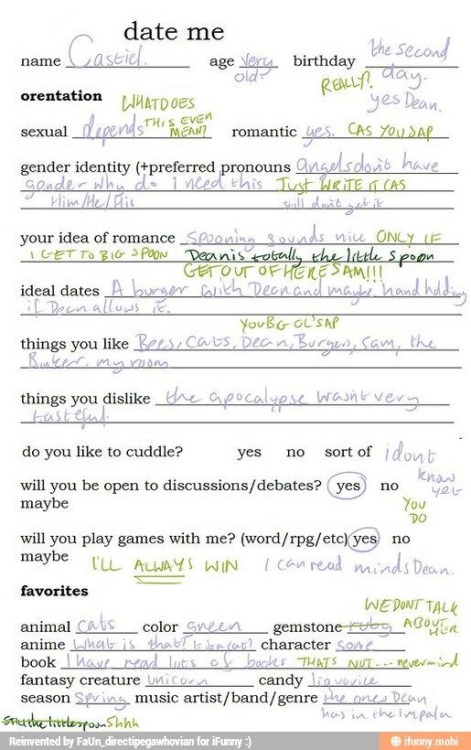 date me
name Castiel. age Very old? birthday the second day.
REALLY?
yes Dean.
orentation
WHAT DOES THIS EVEN MEAN?
sexual depends romantic yes. CAS YOU SAP
gender identity (+preferred pronouns angels don't have
gender why do I need this JUST WRITE IT CAS
Him/He/His still don't get it
your idea of romance Spooning sounds nice ONLY IF
I GET TO BIG SPOON Dean is totally the little spoon
GET OUT OF HERE SAM!!!
ideal dates A burger with Dean and maybe hand holding
if Dean allows it.
YOU BIG OL' SAP
things you like Bees, Cats, Dean, Burgers, Sam, the
Bunker, my room
things you dislike the apocalypse wasn't very
tasteful.
do you like to cuddle? yes no sort of i dont
know yet
will you be open to discussions/debates? yes no
maybe
YOU DO
will you play games with me? (word/rpg/etc) yes no
maybe
I'LL ALWAYS WIN I can read minds Dean.
favorites
WE DONT TALK ABOUT HER
animal cats color green gemstone ruby
anime what is that? is it a cat? character some
book I have read lots of books THATS NOT... nevermind
fantasy creature unicorn candy liquorice
season Spring music artist/band/genre the ones Dean
has in the Impala
still the little spoon Shhh
Reinvented by FaUn_directipegawhovian for iFunny :)
ifunny.mobi